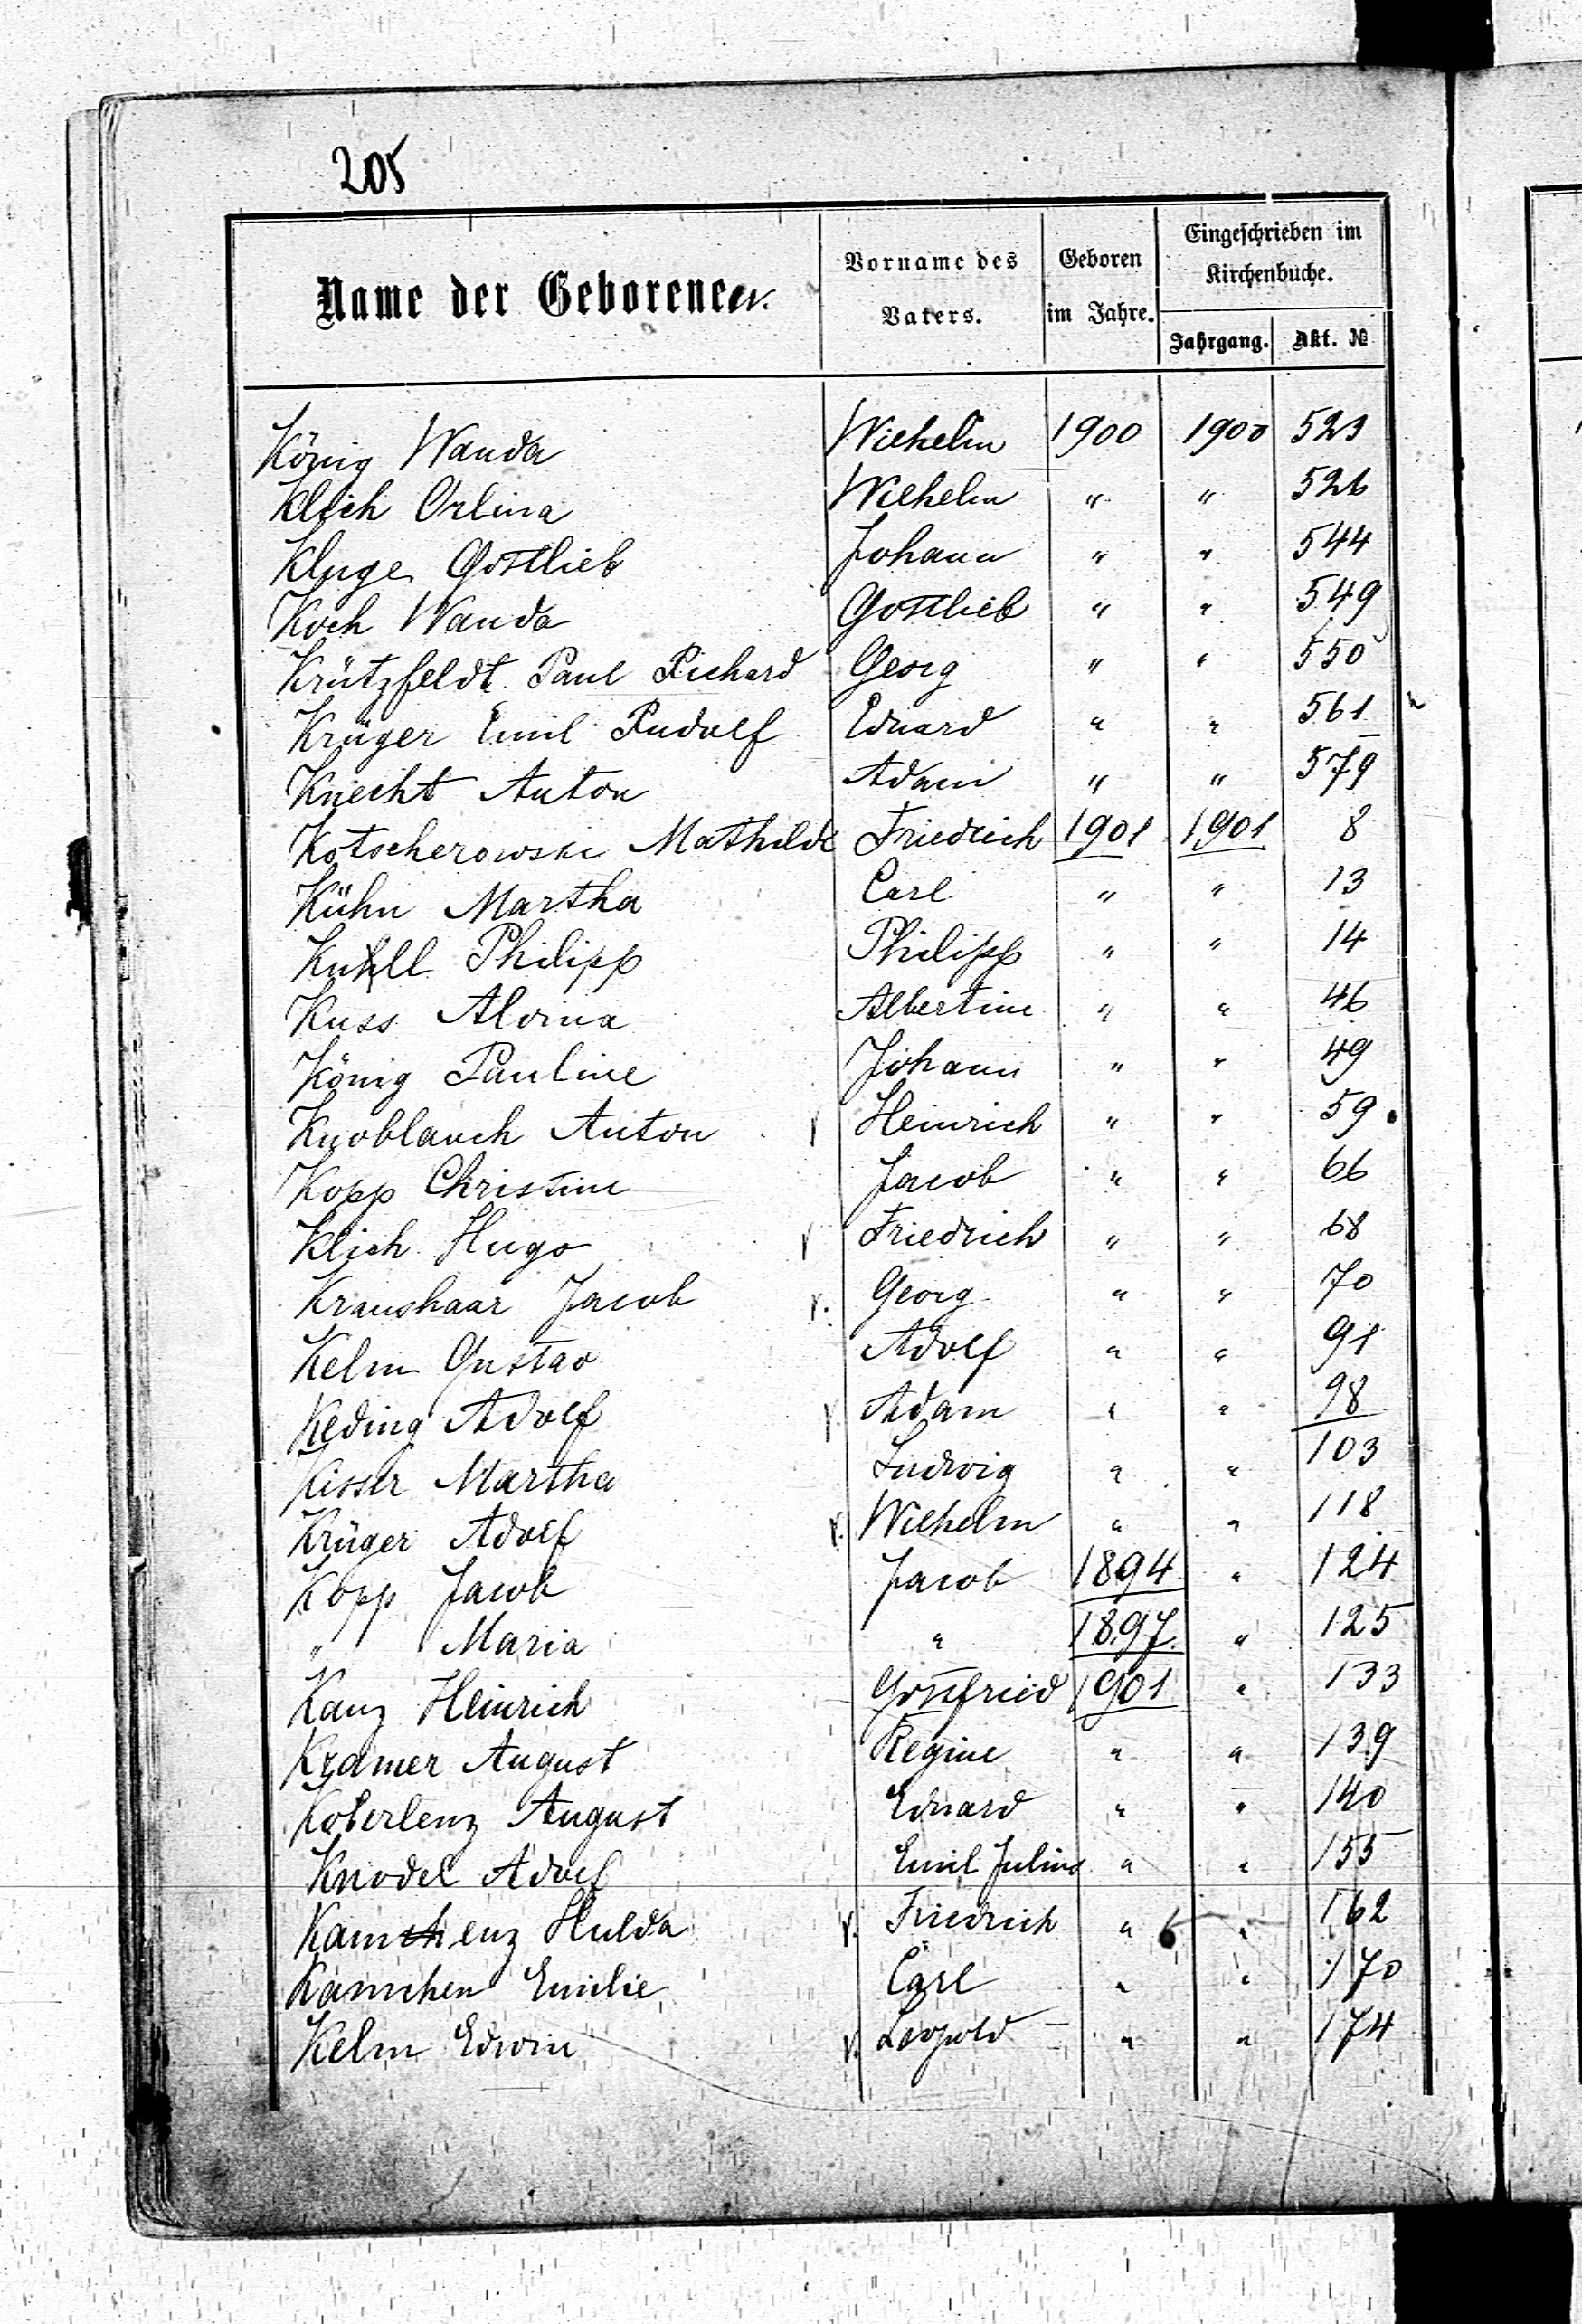 205
Name der Geborenen.
Vorname des Vaters.
Geboren im Jahre.
Eingeschrieben im Kirchenbuche.
Jahrgang. Akt. №
König Wanda Wilhelm 1900 1900 523
Klich Orlina Wilhelm " " 526
Kluge Gottlieb Johann " " 544
Koch Wanda Gottlieb " " 549
Krützfeldt Paul Richard Georg " " 550
Krüger Emil Rudolf Eduard " " 561
Knecht Anton Adam " " 579
Kotscherowski Mathilde Friedrich 1901 1901 8
Kühn Martha Carl " " 13
Kuhll Philipp Philipp " " 14
Kuss Alvina Albertine " " 46
König Pauline Johann " " 49
Knoblauch Anton Heinrich " " 59
Kopp Christine Jacob " " 66
Klich Hugo Friedrich " " 68
Kraushaar Jacob Georg " " 70
Kelm Gustav Adolf " " 91
Keding Adolf Adam " " 98
Kisser Martha Ludwig " " 103
Krüger Adolf Wilhelm " " 118
Kopp Jacob Jacob 1894 " 124
" Maria " 1897. " 125
Kanz Heinrich Gottfried 1901 " 133
Kramer August Regine " " 139
Koberlenz August Eduard " " 140
Knodel Adolf Emil Julius " " 155
Kamchenz Hulda Friedrich " " 162
Kamchen Emilie Carl " " 170
Kelm Edwin Leopold " " 174